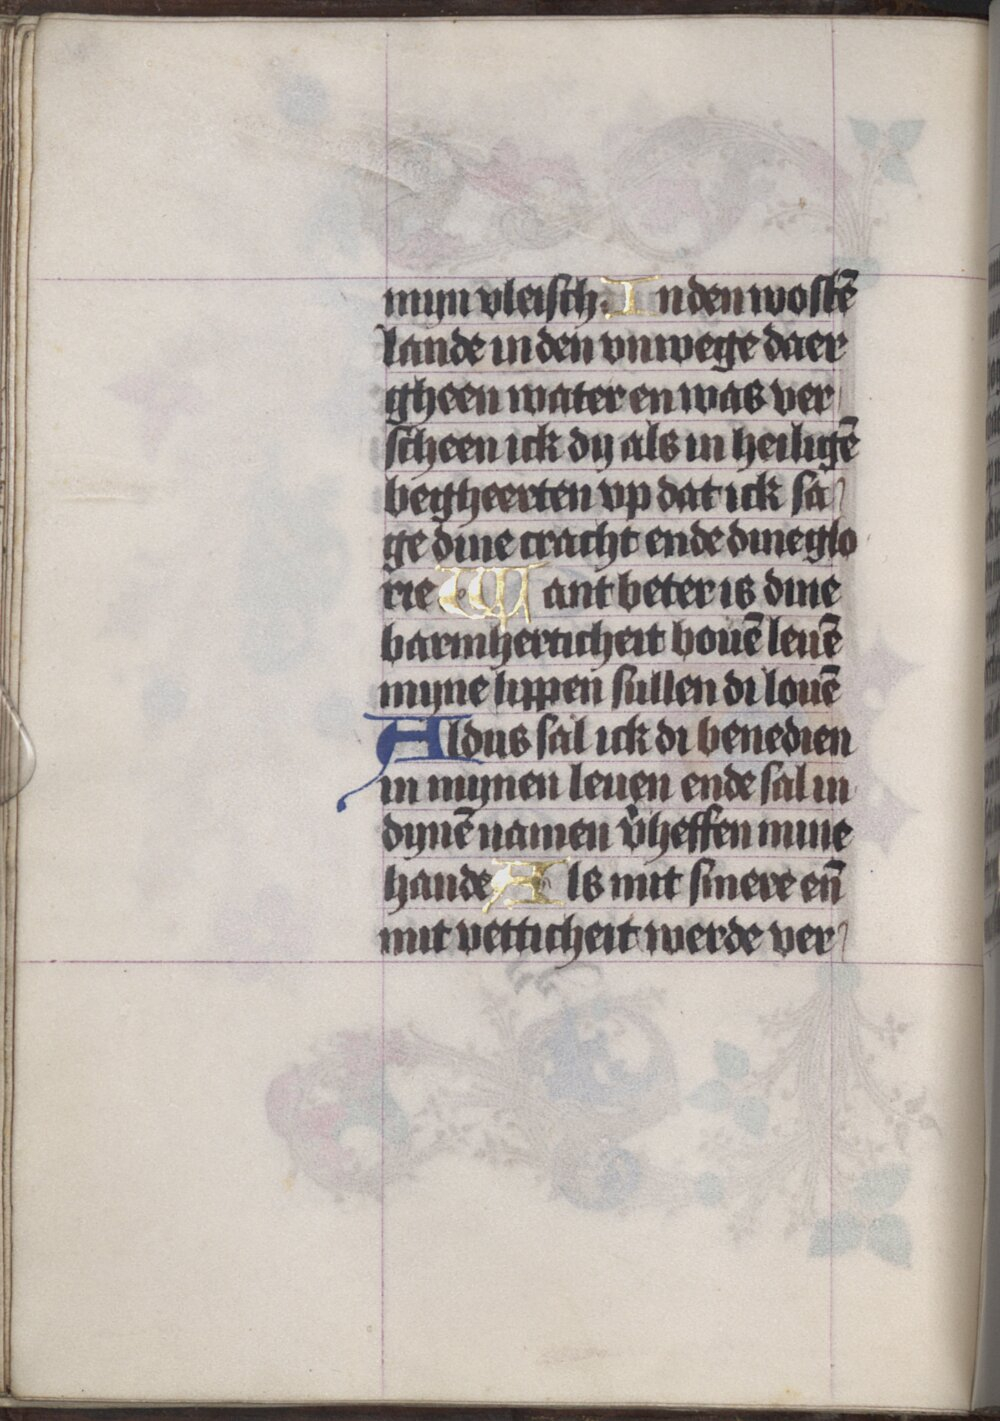 mijn vleisch. In den wostē
lande in den vnwege daer
gheen water en was ver
scheen ick dy als in heiligē
begheerten vp dat ick sa
ge dine cracht ende dine glo
rie Want beter is dine
barmherticheit bouē leuē
myne lippen sullen di louē
Aldus sal ick di benedien
in mynen leuen ende sal in
dynē namen v̄heffen mine
hande Als mit smere en̄
mit vetticheit werde ver